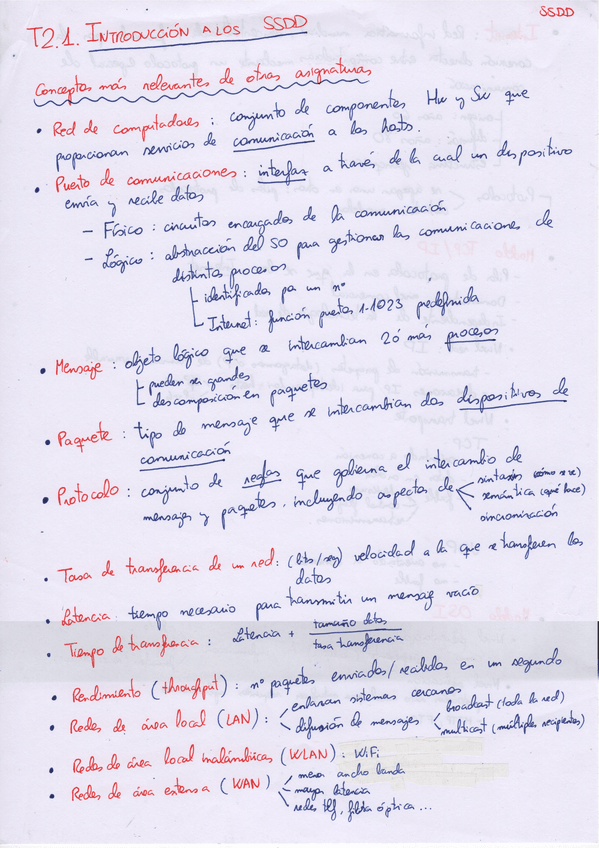 SSDD
T2.1. INTRODUCCIÓN A LOS SSDD
Conceptos más relevantes de otras asignaturas
• Red de computadores: conjunto de componentes Hw y Sw que
proporcionan servicios de comunicación a los hosts.
• Puerto de comunicaciones: interfaz a través de la cual un dispositivo
envía y recibe datos
- Físico: circuitos encargados de la comunicación
- Lógico: abstracción del SO para gestionar las comunicaciones de
distintos procesos
identificados por un nº
Internet: función puertos 1-1023 predefinida
• Mensaje: objeto lógico que se intercambian 2 ó más procesos
pueden ser grandes
descomposición en paquetes
• Paquete: tipo de mensaje que se intercambian dos dispositivos de
comunicación
• Protocolo: conjunto de reglas que gobierna el intercambio de
mensajes y paquetes, incluyendo aspectos de sintaxis (cómo se)
semántica (qué hace)
sincronización
• Tasa de transferencia de un red: (bits/seg) velocidad a la que se transfieren los
datos
• Latencia: tiempo necesario para transmitir un mensaje vacío
• Tiempo de transferencia: Latencia + tamaño datos
tasa transferencia
• Rendimiento (throughput): nº paquetes enviados/recibidos en un segundo
• Redes de área local (LAN): enlazan sistemas cercanos
difusión de mensajes broadcast (toda la red)
multicast (múltiples recipientes)
• Redes de área local inalámbricas (WLAN): WiFi
• Redes de área extensa (WAN) menor ancho banda
mayor latencia
redes tlf, fibra óptica...